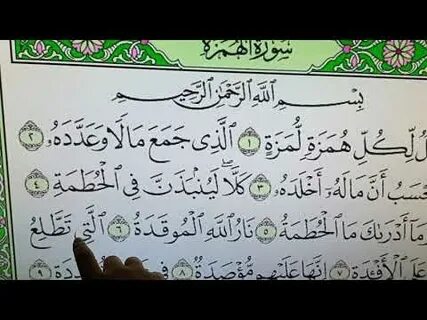 سُورَةُ الهُمَزَةِ
بِسْمِ ٱللَّهِ ٱلرَّحْمَٰنِ ٱلرَّحِيمِ
لِّكُلِّ هُمَزَةٍ لُّمَزَةٍ ١ ٱلَّذِى جَمَعَ مَالًا وَعَدَّدَهُۥ ٢
أَنَّ مَالَهُۥٓ أَخْلَدَهُۥ ٣ كَلَّا ۖ لَيُنۢبَذَنَّ فِى ٱلْحُطَمَةِ ٤
مَآ أَدْرَىٰكَ مَا ٱلْحُطَمَةُ ٥ نَارُ ٱللَّهِ ٱلْمُوقَدَةُ ٦ ٱلَّتِى تَطَّلِعُ
ٱلْأَفْـِٔدَةِ ٧ إِنَّهَا عَلَيْهِم مُّؤْصَدَةٌ ٨ فِى ٩